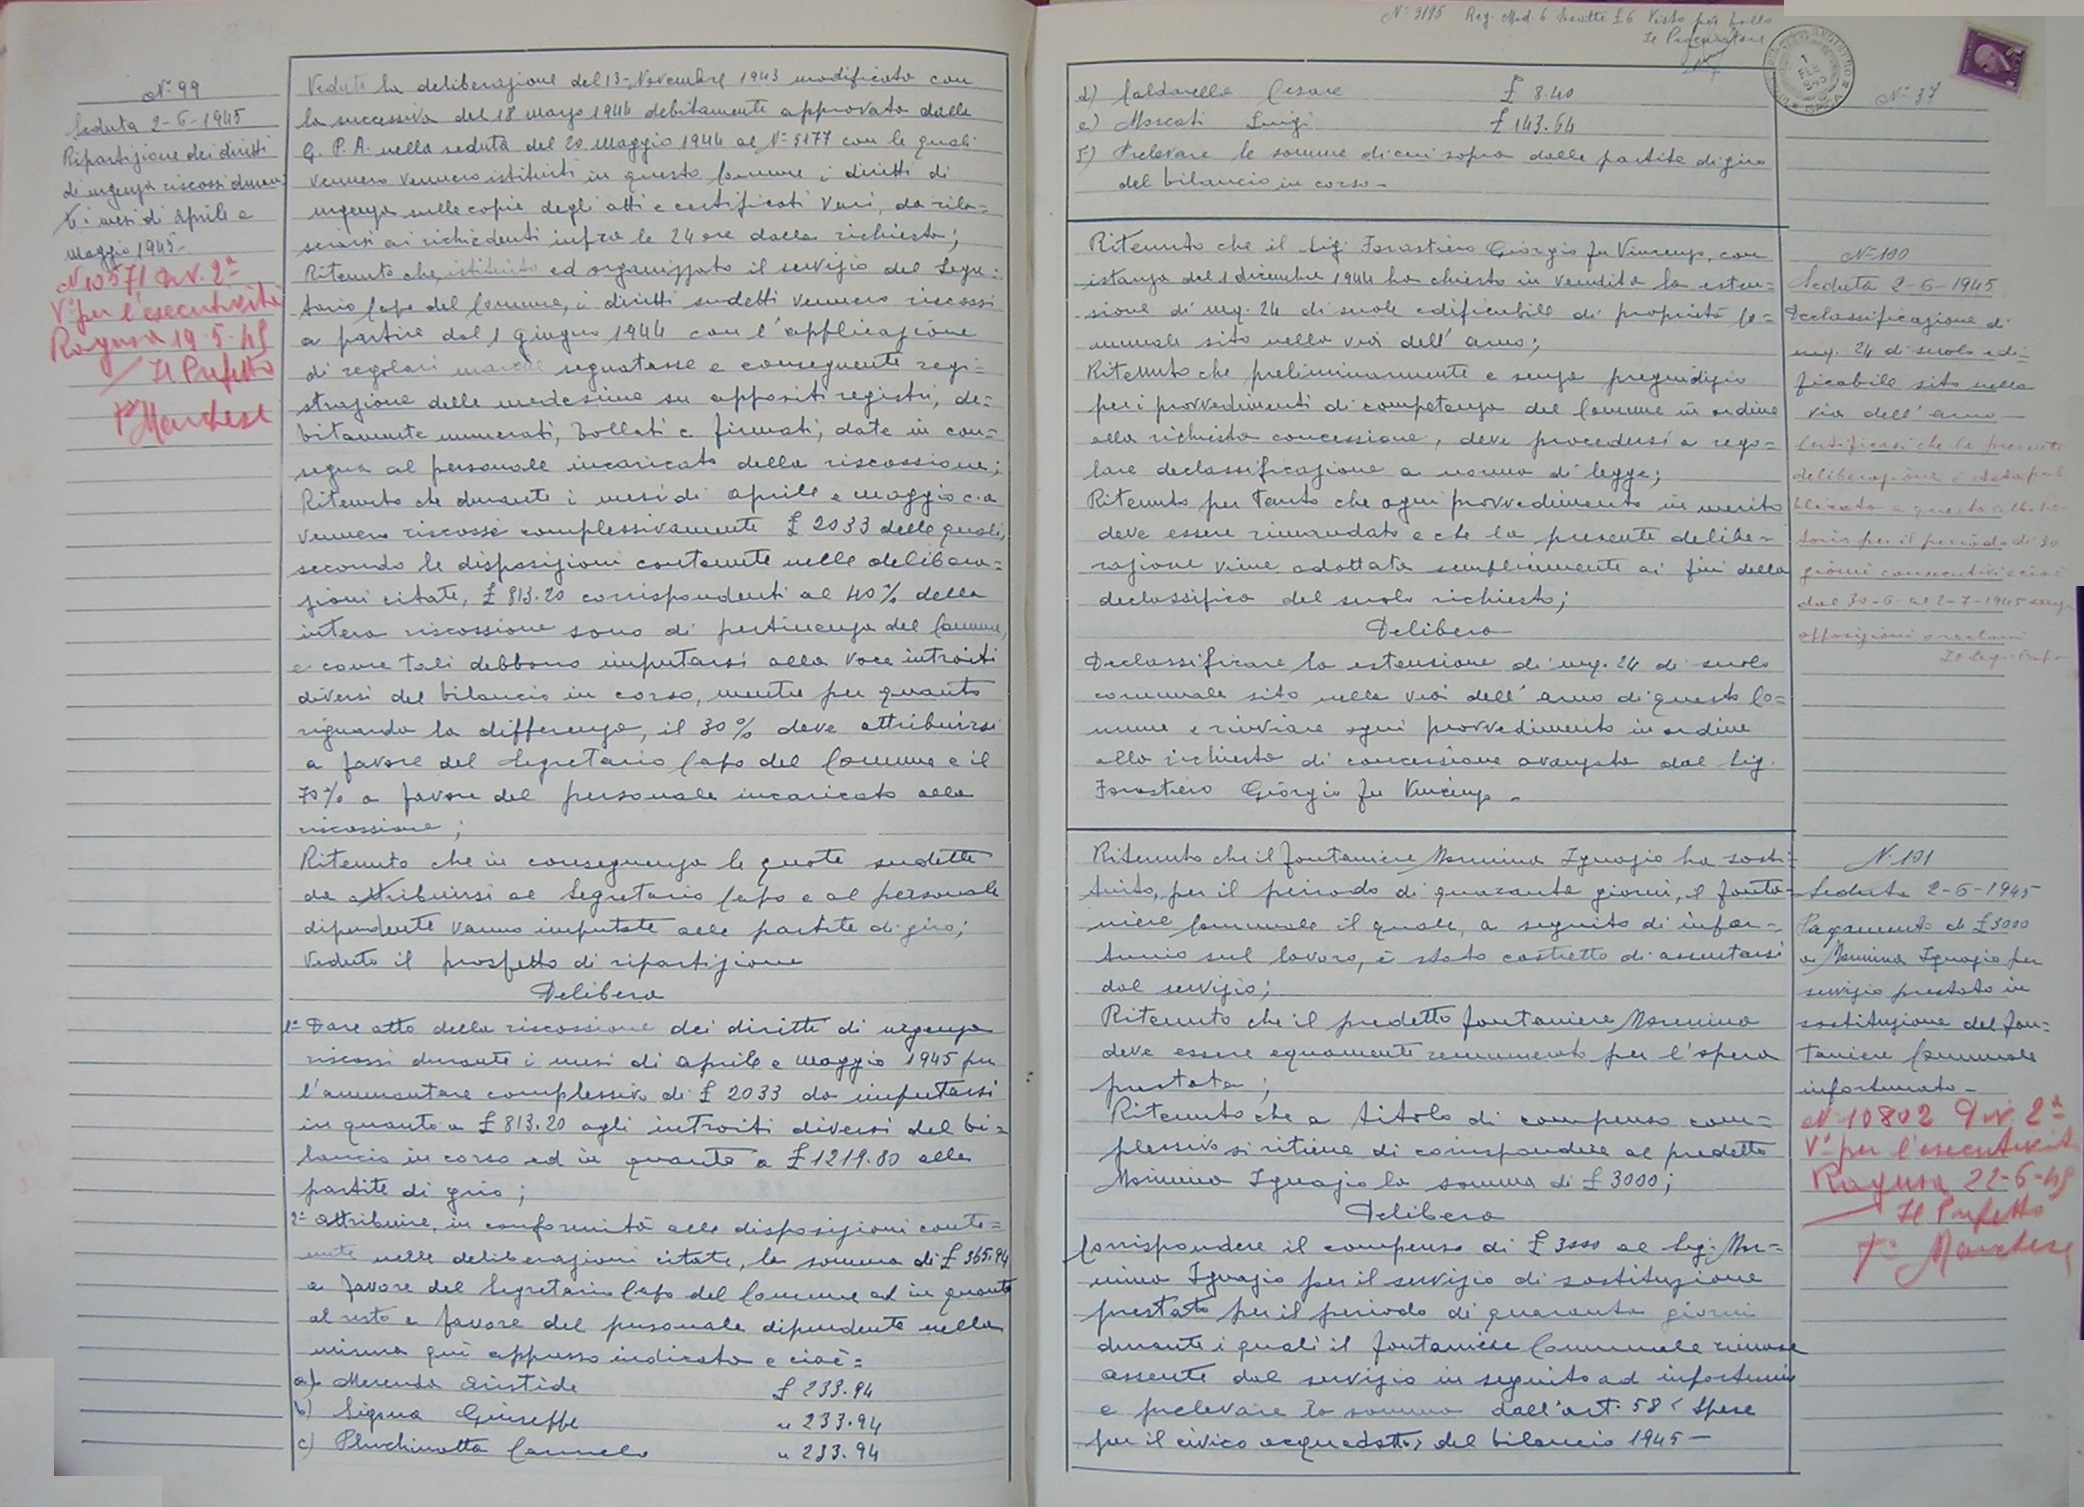 N° 99
Seduta 2-6-1945
Ripartizione dei diritti
di urgenza riscossi duran
te i mesi di Aprile e
Maggio 1945-
N 10571 Div. 2ª
V° per l'esecutività
Ragusa 19-5-45
Il Prefetto
Marchese
Veduta la deliberazione del 13-Novembre 1943 modificata con
la successiva del 18 marzo 1944 debitamente approvata dalla
G. P. A. nella seduta del 20 Maggio 1944 al N° 5177 con le quali
vennero vennero istituiti in questo Comune i diritti di
urgenza sulle copie degli atti e certificati vari, da rila=
sciarsi ai richiedenti infra le 24 ore dalla richiesta;
Ritenuto che, istituito ed organizzato il servizio del Segre=
tario Capo del Comune, i diritti sudetti vennero riscossi
a partire dal 1 giugno 1944 con l'applicazione
di regolari marche segnatasse e conseguente regi=
strazione delle medesime su appositi registri, de=
bitamente numerati, bollati e firmati, date in con=
segna al personale incaricato della riscossione;
Ritenuto che durante i mesi di Aprile e Maggio c.a
vennero riscosse complessivamente £ 2033 delle quali,
secondo le disposizioni contenute nelle delibera=
zioni citate, £ 813.20 corrispondenti al 40% della
intera riscossione sono di pertinenza del Comune,
e come tali debbono imputarsi alla voce introiti
diversi del bilancio in corso, mentre per quanto
riguarda la differenza, il 30% deve attribuirsi
a favore del Segretario Capo del Comune e il
70% a favore del personale incaricato alla
riscossione;
Ritenuto che in conseguenza le quote sudette
da attribuirsi al Segretario Capo e al personale
dipendente vanno imputate alle partite di giro;
Veduto il prospetto di ripartizione
Delibera
1°- Dare atto della riscossione dei diritti di urgenza
riscossi durante i mesi di Aprile e Maggio 1945 per
l'ammontare complessivo di £ 2033 da imputarsi
in quanto a £ 813.20 agli introiti diversi del bi=
lancio in corso ed in quanto a £ 1219.80 alle
partite di giro;
2°- Attribuire, in conformità alle disposizioni conte=
nute nelle deliberazioni citate, la somma di £ 365.94
a favore del Segretario Capo del Comune ed in quanto
al resto a favore del personale dipendente nella
misura quì appresso indicata e cioè=
a) Merenda Aristide £ 233.94
b) Signa Giuseppe " 233.94
c) Pluchinotta Carmelo " 233.94
N° 3195 Reg. Mod 6 Esatte £ 6 Visto per bollo
Il Procuratore
N° 37
d) Caldarella Cesare £ 8.40
e) Moscati Luigi £ 143.64
5) Prelevare le somme di cui sopra dalle partite di giro
del bilancio in corso-
Ritenuto che il Sig. Forastiero Giorgio fu Vincenzo, con
istanza del 1 dicembre 1944 ha chiesto in vendita la esten=
sione di mq. 24 di suolo edificabile di proprietà Co=
munale sito nella via dell'Amo;
Ritenuto che preliminarmente e senza pregiudizio
per i provvedimenti di competenza del Comune in ordine
alla richiesta concessione, deve procedersi a rego=
lare declassificazione a norma di legge;
Ritenuto per tanto che ogni provvedimento in merito
deve essere rimandato e che la presente delibe=
razione viene adottata semplicemente ai fini della
declassifica del suolo richiesto;
Delibera
Declassificare la estensione di mq. 24 di suolo
comunale sito nella via dell'Amo di questo Co=
mune e rinviare ogni provvedimento in ordine
alla richiesta di concessione avanzata dal Sig.
Forastiero Giorgio fu Vincenzo.
N° 100
Seduta 2-6-1945
Declassificazione di
mq. 24 di suolo edi=
ficabile sito nella
via dell'Amo-
Certificasi che la presente
deliberazione è stata pub
blicata a questo albo pre
torio per il periodo di 30
giorni consecutivi e cioè
dal 30-6 al 2-7-1945 senza
opposizioni o reclami
Il Seg. Capo
Ritenuto che il fontaniere Mormina Ignazio ha sosti=
tuito, per il periodo di quaranta giorni, il fonta=
niere Comunale il quale, a seguito di infor=
tunio sul lavoro, è stato costretto di assentarsi
dal servizio;
Ritenuto che il predetto fontaniere Mormina
deve essere equamente remunerato per l'opera
prestata;
Ritenuto che a titolo di compenso com=
plessivo si ritiene di corrispondere al predetto
Mormina Ignazio la somma di £ 3000;
Delibera
Corrispondere il compenso di £ 3000 al Sig. Mor=
mina Ignazio per il servizio di sostituzione
prestato per il periodo di quaranta giorni
durante i quali il fontaniere Comunale rimase
assente dal servizio in seguito ad infortunio
e prelevare la somma dall'art. 58 < Spese
per il civico acquedotto> del bilancio 1945-
N. 101
Seduta 2-6-1945
Pagamento di £ 3000
a Mormina Ignazio per
servizio prestato in
sostituzione del fon=
taniere Comunale
infortunato-
N° 10802 Div. 2ª
V° per l'esecutività
Ragusa 22-6-45
Il Prefetto
Marchese